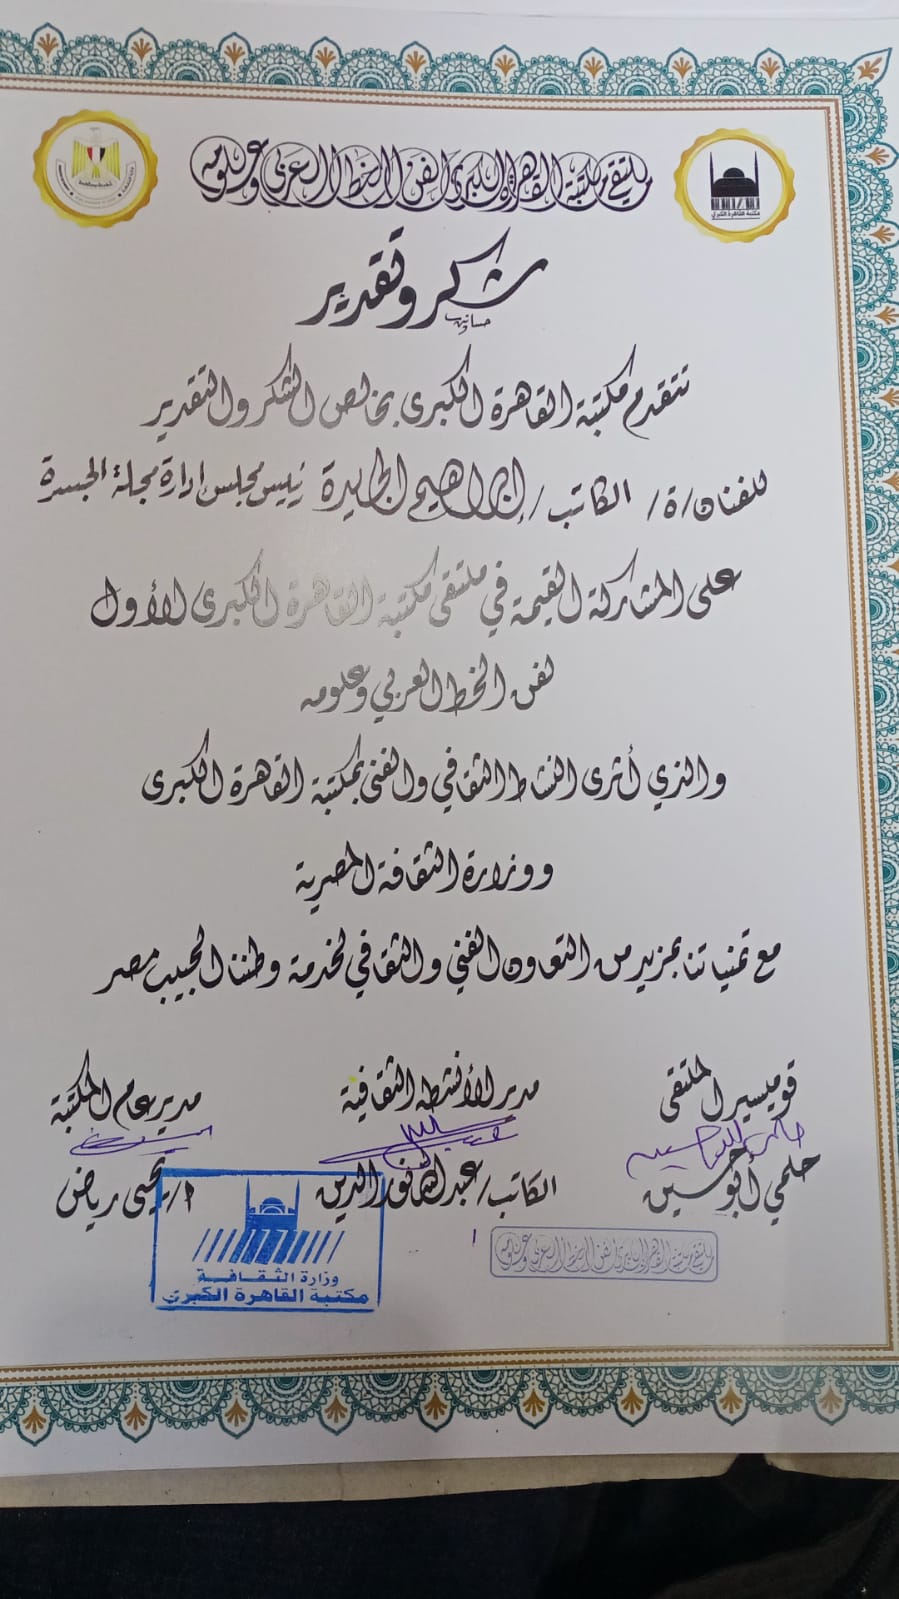 ملتقى مكتبة القاهرة الكبرى لفن الخط العربي وعلومه
مكتبة القاهرة الكبرى
شكر وتقدير
تتقدم مكتبة القاهرة الكبرى بخالص الشكر والتقدير
للفنان/ة/ الكاتب/ إبراهيم الجايدة رئيس مجلس ادارة مجلة الجسرة
على المشاركة القيمة في ملتقى مكتبة القاهرة الكبرى الأول
لفن الخط العربي وعلومه
والذي أثرى النشاط الثقافي والفنى بمكتبة القاهرة الكبرى
ووزارة الثقافة المصرية
مع تمنياتنا بمزيد من التعاون الفني والثقافي لخدمة وطننا الحبيب مصر
قوميسير الملتقى
مدير الأنشطة الثقافية
مدير عام المكتبة
حلمي أبو حسين
الكاتب/ عبدالله نور الدين
أ/ يحيى رياض
وزارة الثقافة
مكتبة القاهرة الكبرى
ملتقى مكتبة القاهرة الكبرى لفن الخط العربي وعلومه